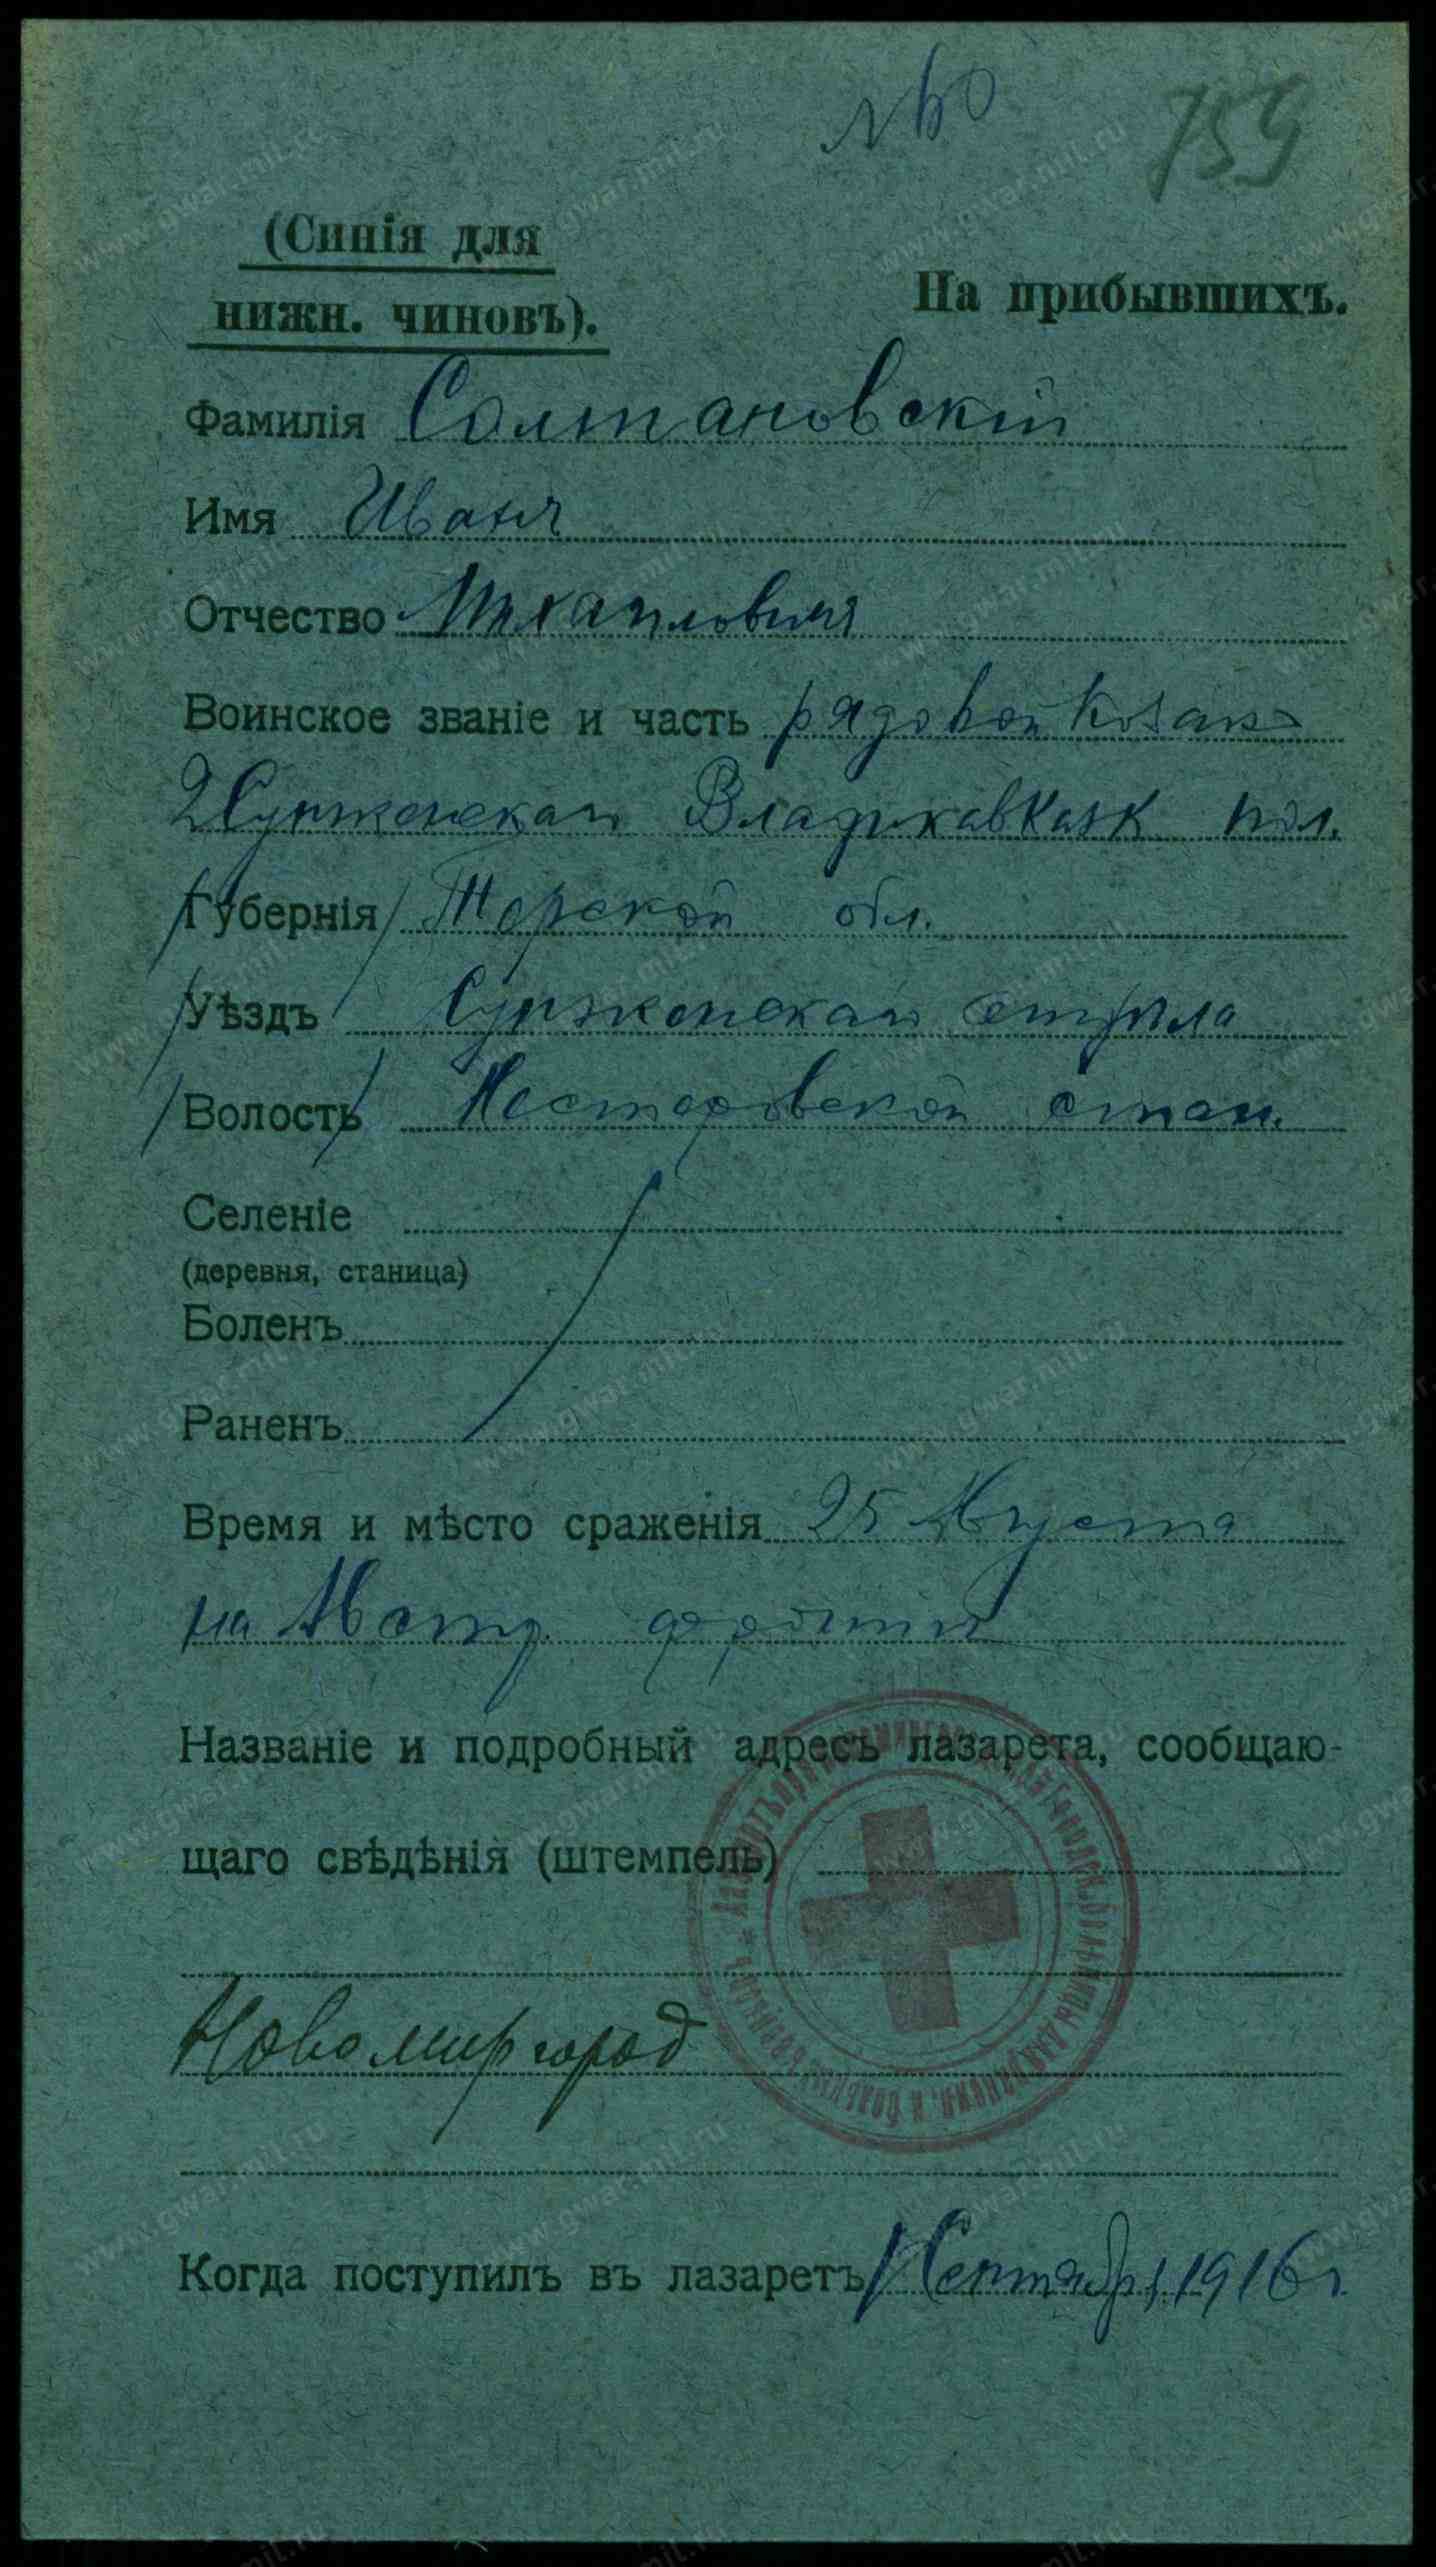 759
(Синія для
нижн. чиновъ).
На прибывшихъ.
Фамилія Солтановскій
Имя Иванъ
Отчество Михайловичъ
Воинское званіе и часть рядовой козак
Владикавказк пол.
Губернія Терской обл.
Уѣздъ
Волость Нестеровской стан.
Селеніе
(деревня, станица)
Боленъ
Раненъ
Время и мѣсто сраженія 25 Августа
на Австр.
Названіе и подробный адресъ лазарета, сообщаю-
щаго свѣдѣнія (штемпель)
Новомиргород
Когда поступилъ въ лазаретъ 1 Сентябр 1916 г
www.gwar.mil.ru